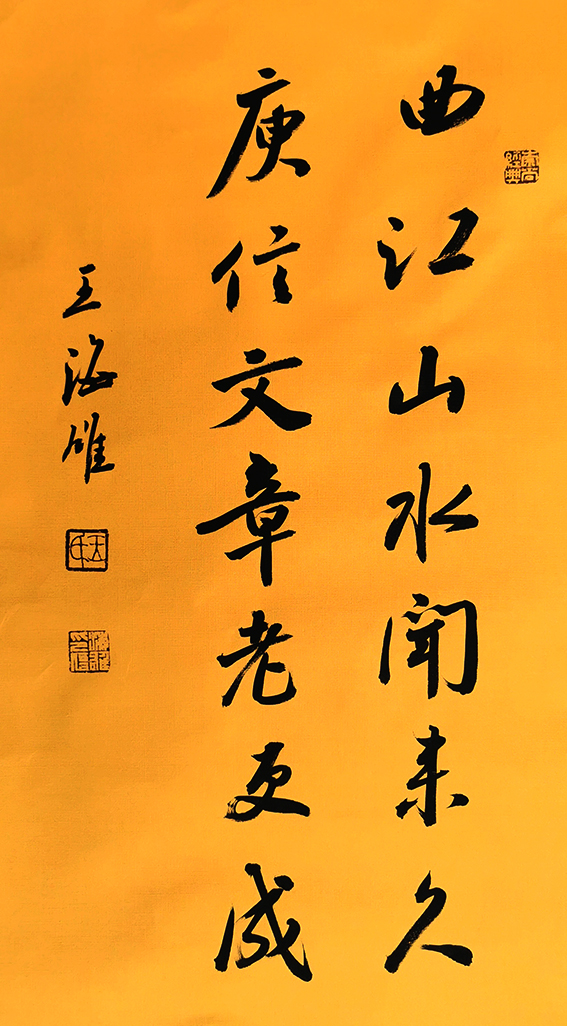 曲江山水闻来久
庾信文章老更成
王海雄